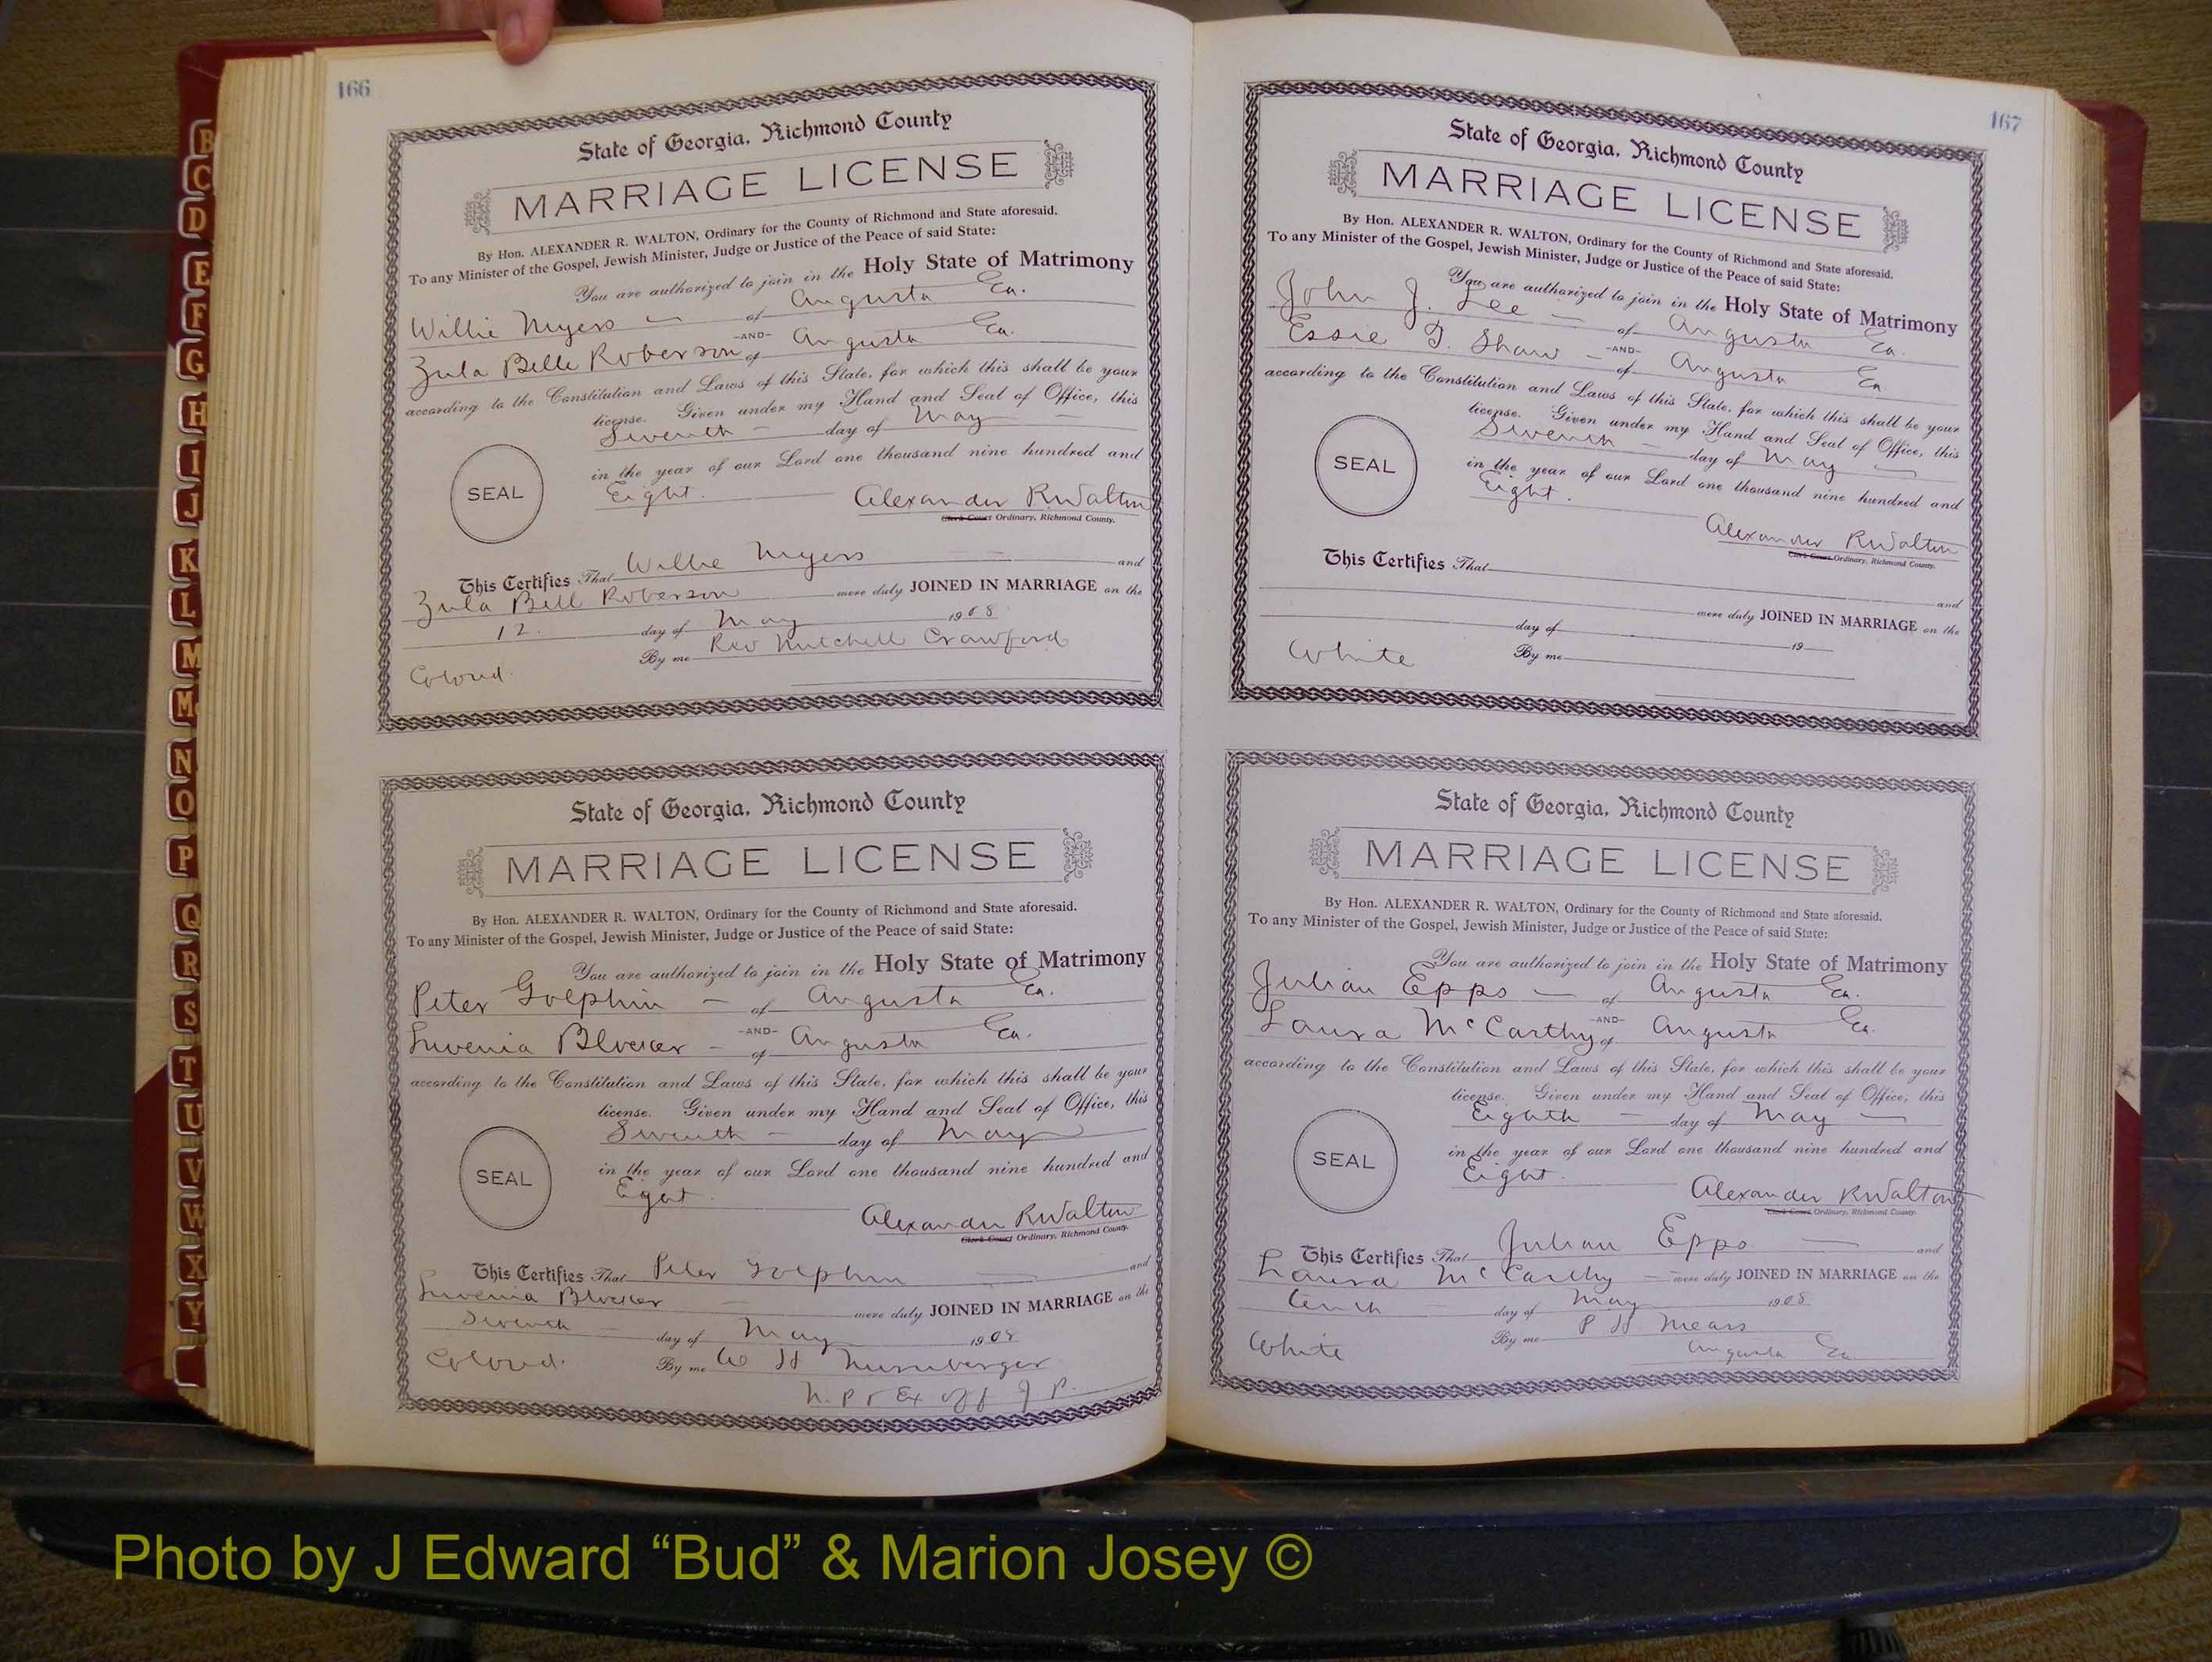 166
State of Georgia, Richmond County
MARRIAGE LICENSE
By Hon. ALEXANDER R. WALTON, Ordinary for the County of Richmond and State aforesaid.
To any Minister of the Gospel, Jewish Minister, Judge or Justice of the Peace of said State:
You are authorized to join in the Holy State of Matrimony
Willie Myers of Augusta Ga.
-AND-
Zula Belle Roberson of Augusta Ga.
according to the Constitution and Laws of this State, for which this shall be your
license. Given under my Hand and Seal of Office, this
Seventh day of May
in the year of our Lord one thousand nine hundred and
SEAL
Eight.
Alexander R Walton
Clerk Court Ordinary, Richmond County.
This Certifies That Willie Myers and
Zula Bell Roberson were duly JOINED IN MARRIAGE on the
12. day of May 1908
By me Rev Mitchell Crawford
Colored.
State of Georgia, Richmond County
MARRIAGE LICENSE
By Hon. ALEXANDER R. WALTON, Ordinary for the County of Richmond and State aforesaid.
To any Minister of the Gospel, Jewish Minister, Judge or Justice of the Peace of said State:
You are authorized to join in the Holy State of Matrimony
Peter Golphin of Augusta Ga.
-AND-
Luvenia Blocker of Augusta Ga.
according to the Constitution and Laws of this State, for which this shall be your
license. Given under my Hand and Seal of Office, this
Seventh day of May
in the year of our Lord one thousand nine hundred and
SEAL
Eight.
Alexander R Walton
Clerk Court Ordinary, Richmond County.
This Certifies That Peter Golphin and
Luvenia Blocker were duly JOINED IN MARRIAGE on the
Seventh day of May 1908
Colored. By me W H
N. P & Ex off J P.
167
State of Georgia, Richmond County
MARRIAGE LICENSE
By Hon. ALEXANDER R. WALTON, Ordinary for the County of Richmond and State aforesaid.
To any Minister of the Gospel, Jewish Minister, Judge or Justice of the Peace of said State:
You are authorized to join in the Holy State of Matrimony
John J. Lee of Augusta Ga.
-AND-
Essie G. Shaw of Augusta Ga.
according to the Constitution and Laws of this State, for which this shall be your
license. Given under my Hand and Seal of Office, this
Seventh day of May
in the year of our Lord one thousand nine hundred and
SEAL
Eight.
Alexander R Walton
Clerk Court Ordinary, Richmond County.
This Certifies That and
were duly JOINED IN MARRIAGE on the
day of 19
White By me
State of Georgia, Richmond County
MARRIAGE LICENSE
By Hon. ALEXANDER R. WALTON, Ordinary for the County of Richmond and State aforesaid.
To any Minister of the Gospel, Jewish Minister, Judge or Justice of the Peace of said State:
You are authorized to join in the Holy State of Matrimony
Julian Epps of Augusta Ga.
-AND-
Laura McCarthy of Augusta Ga.
according to the Constitution and Laws of this State, for which this shall be your
license. Given under my Hand and Seal of Office, this
Eighth day of May
in the year of our Lord one thousand nine hundred and
SEAL
Eight.
Alexander R Walton
Clerk Court Ordinary, Richmond County.
This Certifies That Julian Epps and
Laura McCarthy were duly JOINED IN MARRIAGE on the
tenth day of May 1908
By me P H Mears
White Augusta Ga
B
C
D
E
F
G
H
I
J
K
L
M
Mc
N
O
P
Q
R
S
T
U
V
W
X
Y
Photo by J Edward “Bud” & Marion Josey ©